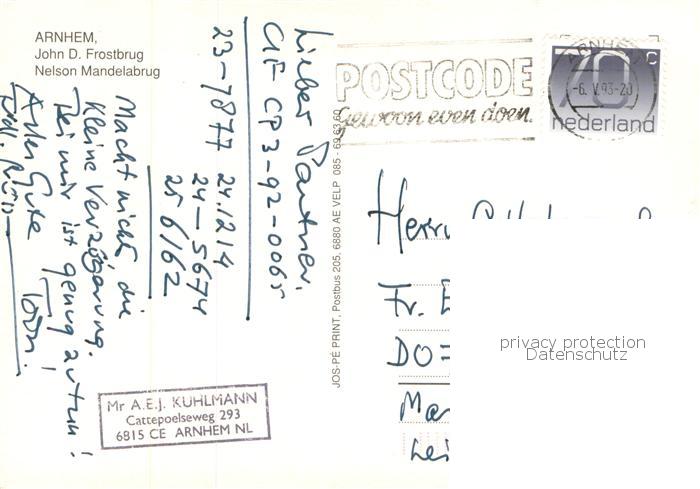 ARNHEM,
John D. Frostbrug
Nelson Mandelabrug
Lieber Partner,
CP3-92-0065
23-7877 24.1214
24-5674
25 6/62
Macht nicht, die
Kleine Verzögerung.
Bei mir ist genug zu tun!
Alles Gute
Mr A.E.J. KUHLMANN
Cattepoelseweg 293
6815 CE ARNHEM NL
JOS-PÉ PRINT, Postbus 205, 6880 AE VELP 085 -
POSTCODE
Gewoon even doen.
ARNHEM
-6. V.93-20
70 c
nederland
Herrn
Fr.
DO=
Ma
Lei
privacy protection
Datenschutz